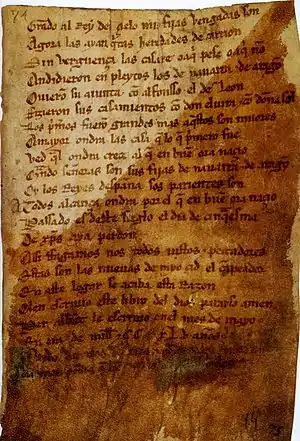 74
Grado al Rey del çielo mis fijas vengadas son
Agora las ayan q̃tas heredades de carrion
Sin vergueñça las casare o aq̃ pese o aq̃ nõ
Andidieron en pleytos los de nauarra & de aragõ
Ouierõ su aiunta cõ alfonsso el de Leon
Fizieron sus casamientos cõ don eluira & cõ doña sol
Los p̃meros fuerõ grandes mas aq̃stos son miiores
A mayor ondra las casa q̃ lo q̃ p̃mero fue
Ved q̃l ondra creçe al q̃ en buẽ ora naçio
Quãdo señoras son sus fijas de nauarra & de aragõ
Oy los Reyes despaña sos parientes son
A todos alcança ondra por el q̃ en buẽ ora naçio
Passado es deste sieglo el dia de cinquaesma
De xp̃s aya perdon
Assi ffagamos nos todos iustos & peccadores
Estas son las nueuas de myo çid el campeador
En este logar se acaba esta Razon
Quien escriuio este libro del dios parayso amen
Per abbat le escriuio en el mes de mayo
En era de mill & CC XLV años